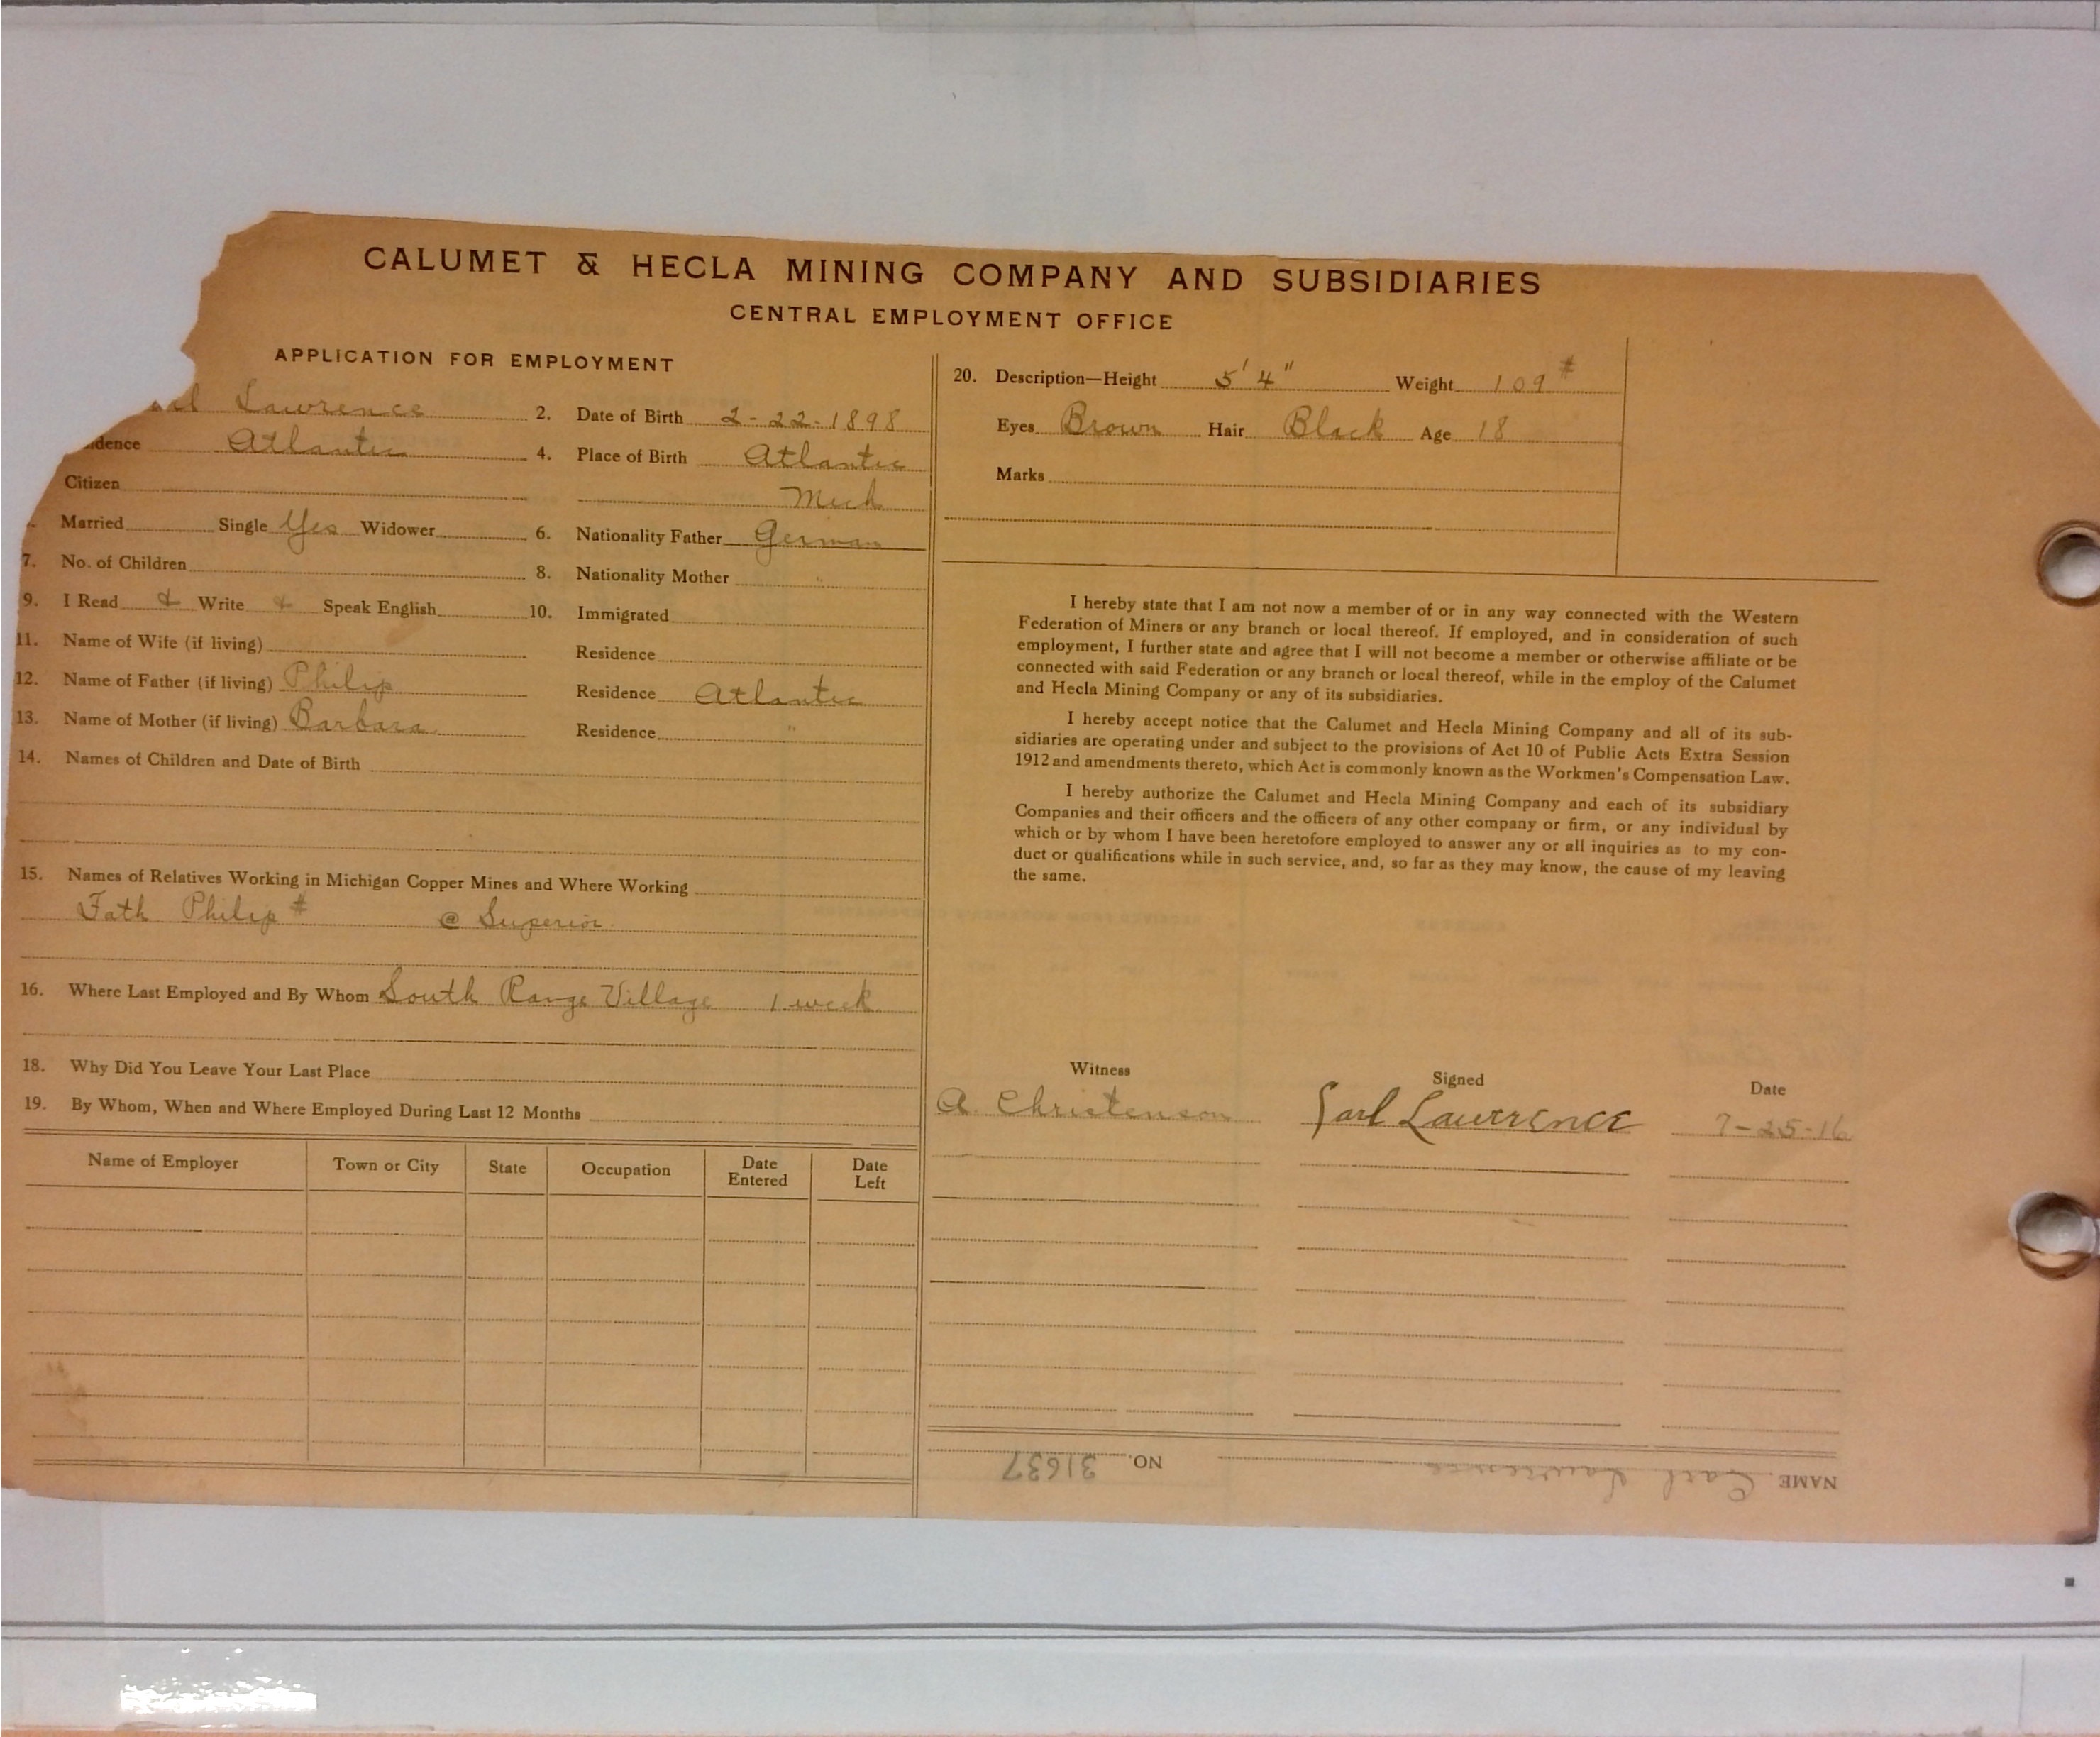 CALUMET & HECLA MINING COMPANY AND SUBSIDIARIES
CENTRAL EMPLOYMENT OFFICE
APPLICATION FOR EMPLOYMENT
Lawrence 2. Date of Birth 2-22-1898
idence Atlantic 4. Place of Birth Atlantic
Citizen Mich
Married Single Yes Widower 6. Nationality Father German
7. No. of Children 8. Nationality Mother "
9. I Read & Write & Speak English 10. Immigrated
11. Name of Wife (if living) Residence
12. Name of Father (if living) Philip Residence Atlantic
13. Name of Mother (if living) Barbara Residence "
14. Names of Children and Date of Birth
15. Names of Relatives Working in Michigan Copper Mines and Where Working
Fath Philip # @ Superior
16. Where Last Employed and By Whom South Range Village 1 week
18. Why Did You Leave Your Last Place
19. By Whom, When and Where Employed During Last 12 Months
Name of Employer Town or City State Occupation Date Entered Date Left
20. Description—Height 5' 4" Weight 109 #
Eyes Brown Hair Black Age 18
Marks
I hereby state that I am not now a member of or in any way connected with the Western
Federation of Miners or any branch or local thereof. If employed, and in consideration of such
employment, I further state and agree that I will not become a member or otherwise affiliate or be
connected with said Federation or any branch or local thereof, while in the employ of the Calumet
and Hecla Mining Company or any of its subsidiaries.
I hereby accept notice that the Calumet and Hecla Mining Company and all of its sub-
sidiaries are operating under and subject to the provisions of Act 10 of Public Acts Extra Session
1912 and amendments thereto, which Act is commonly known as the Workmen's Compensation Law.
I hereby authorize the Calumet and Hecla Mining Company and each of its subsidiary
Companies and their officers and the officers of any other company or firm, or any individual by
which or by whom I have been heretofore employed to answer any or all inquiries as to my con-
duct or qualifications while in such service, and, so far as they may know, the cause of my leaving
the same.
Witness Signed Date
A. Christenson Carl Lawrence 7-25-16
NAME Carl Lawrence NO. 31637